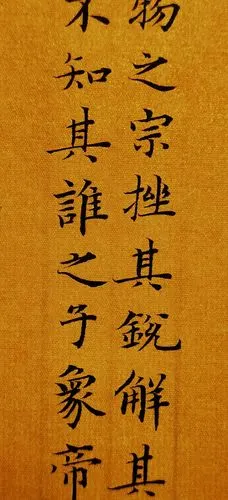 物之宗挫其銳解其
不知其誰之子象帝